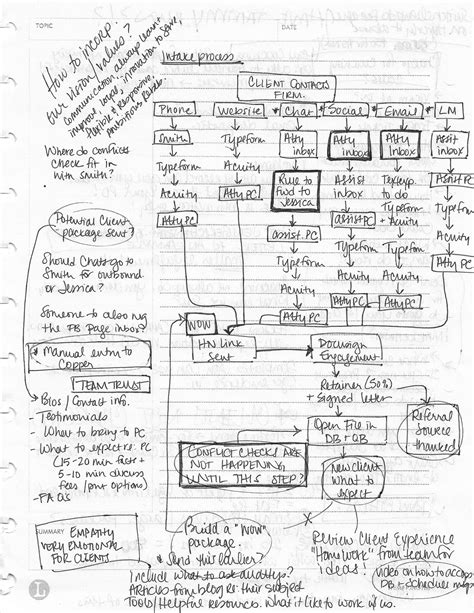 TOPIC
DATE
How to incorp.
our vision/values?
communication always want
improve, loyal, innovation to save,
flexible & responsive,
Intake process
CLIENT CONTACTS
FIRM.
Phone
Website
* Chat
Social
* Email
LM
Smith
Typeform
Atty
inbox
Atty
inbox
Atty
inbox
Asst
inbox
Typeform
Acuity
Rule to
fwd to
Jessica
Assist
inbox
Textexp.
to do
Atty PC
Acuity
Atty PC
assist. PC
assist PC
Typeform
+ Acuity
Typeform
Atty PC
Typeform
Typeform
Atty PC
Acuity
Acuity
Acuity
Atty PC
Atty PC
Atty PC
Where do conflicts
check fit in
with Smith?
Potential Client
package sent?
Should Chats go to
Smith for outbound
or Jessica?
Someone to also rvg
the FB Page inbox?
* Manual entry to
Copper
TEAM TRUST
- Bios / Contact info.
- Testimonials
- What to bring to PC
- What to expect re: PC
(15-20 min facts +
5-10 min discuss
fees / pmt options)
- FAQs
WOW
HN Link
sent
Docusign
Engagement
Retainer (50%)
+ Signed letter
Open File in
DB + QB
Referral
Source
thanked
CONFLICT CHECKS ARE
NOT HAPPENING
UNTIL THIS STEP?
New client
What to
expect
SUMMARY
EMPATHY
VERY EMOTIONAL
FOR CLIENTS
Build a "WOW"
package.
* Send this earlier?
Include what to ask
Articles from blog re: their subject
Tools/Helpful resources. What it's like to work w/ us.
Review Client Experience
"Homework" from team for
ideas!
video on how to access
DB + schedule mtgs
L